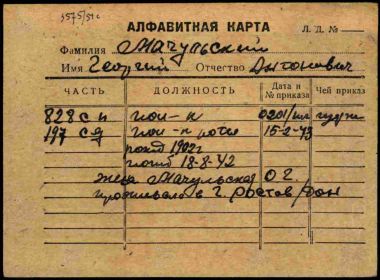 3575/51с
АЛФАВИТНАЯ КАРТА Л. Д. №
Фамилия Мачульский
Имя Георгий Отчество Антонович
ЧАСТЬ ДОЛЖНОСТЬ Дата и № приказа Чей приказ
828 сп пом-к 0201/
197 сд пом-к роты 15-2-43
рожд 1902г
погиб 18-8-42
жена Мачульская О Г.
проживала в г. Ростов/Дон